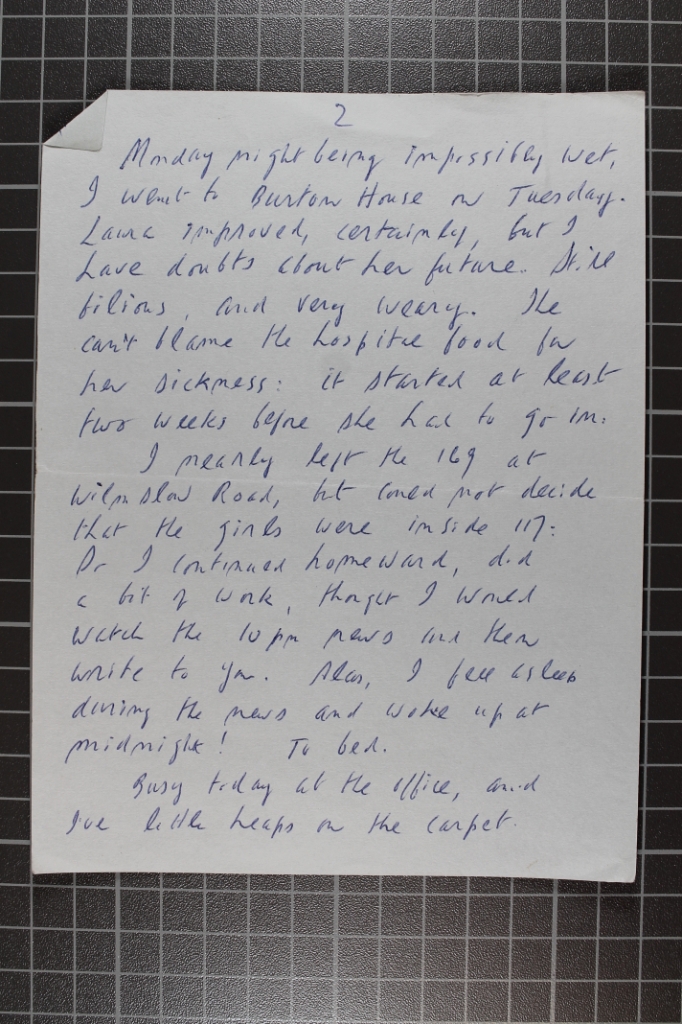 2
Monday night being impossibly wet,
I went to Burton House on Tuesday.
Laura improved, certainly, but I
have doubts about her future. Still
bilious, and very weary. She
can't blame the hospital food for
her sickness: it started at least
two weeks before she had to go in.
I nearly left the 169 at
Wilmslow Road, but could not decide
that the girls were inside 117:
So I continued homeward, did
a bit of work, thought I would
watch the 10 pm news and then
write to you. Alas, I fell asleep
during the news and woke up at
midnight! To bed.
Busy today at the office, and
I've little heaps on the carpet.